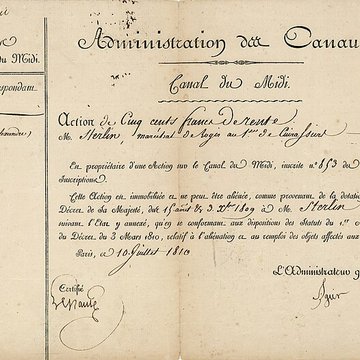 du Midi.
Administration des Canaux
Canal du Midi.
Action de Cinq cents francs de rente
M. Sterlin, maréchal de logis au 1er de Cuirassiers
Est propriétaire d'une Action sur le Canal du Midi, inscrite nº 853 du
Inscriptions.
Cette Action est immobilisée et ne peut être aliénée, comme provenant de la dotation
Décret de Sa Majesté, daté 15 août & 3 Xbre 1809 à M. Sterlin
suivant l'Etat y annexé, qu'en se conformant aux dispositions des Statuts du 1er
du Décret du 3 Mars 1810, relatif à l'aliénation et au remploi des objets affectés aux
Paris, ce 10 Juillet 1810
L'Administrateur g
Certifié